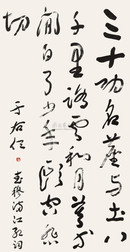 三十功名塵与土八
千里路雲和月莫等
閒白了少年頭空悲
切
于右任
武穆滿江紅詞